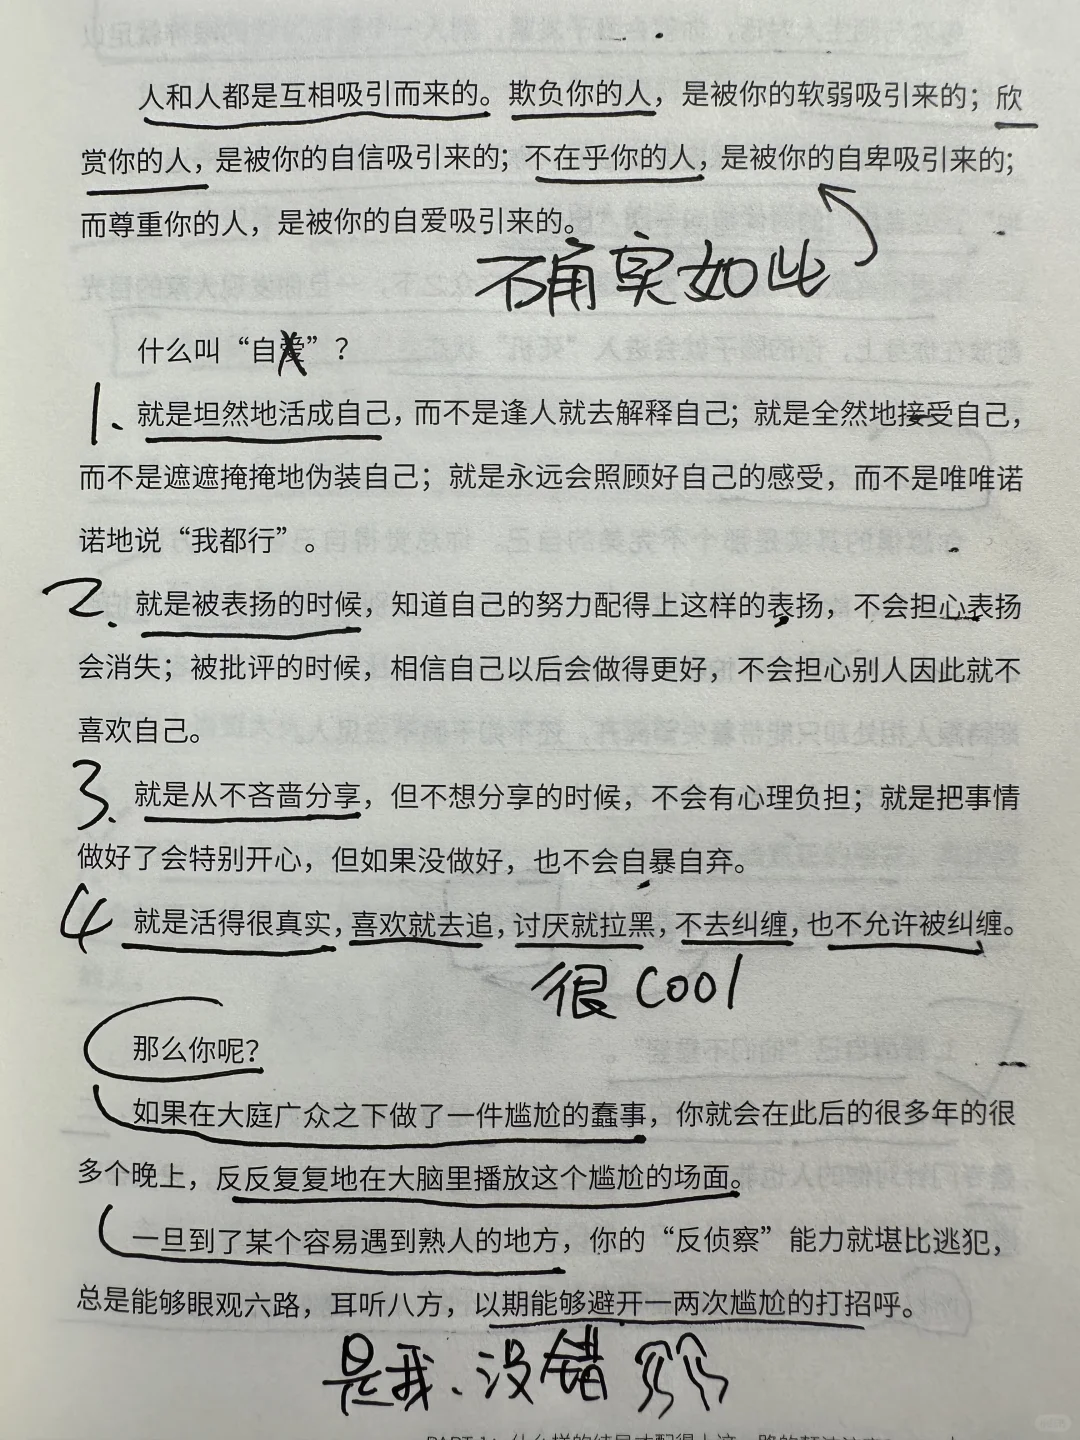 人和人都是互相吸引而来的。欺负你的人，是被你的软弱吸引来的；欣
赏你的人，是被你的自信吸引来的；不在乎你的人，是被你的自卑吸引来的；
而尊重你的人，是被你的自爱吸引来的。
如此
什么叫“自爱”？
1、就是坦然地活成自己，而不是逢人就去解释自己；就是全然地接受自己，
而不是遮遮掩掩地伪装自己；就是永远会照顾好自己的感受，而不是唯唯诺
诺地说“我都行”。
2、就是被表扬的时候，知道自己的努力配得上这样的表扬，不会担心表扬
会消失；被批评的时候，相信自己以后会做得更好，不会担心别人因此就不
喜欢自己。
3、就是从不吝啬分享，但不想分享的时候，不会有心理负担；就是把事情
做好了会特别开心，但如果没做好，也不会自暴自弃。
4 就是活得很真实，喜欢就去追，讨厌就拉黑，不去纠缠，也不允许被纠缠。
很 cool
那么你呢？
如果在大庭广众之下做了一件尴尬的蠢事，你就会在此后的很多年的很
多个晚上，反反复复地在大脑里播放这个尴尬的场面。
一旦到了某个容易遇到熟人的地方，你的“反侦察”能力就堪比逃犯，
总是能够眼观六路，耳听八方，以期能够避开一两次尴尬的打招呼。
是我、没错